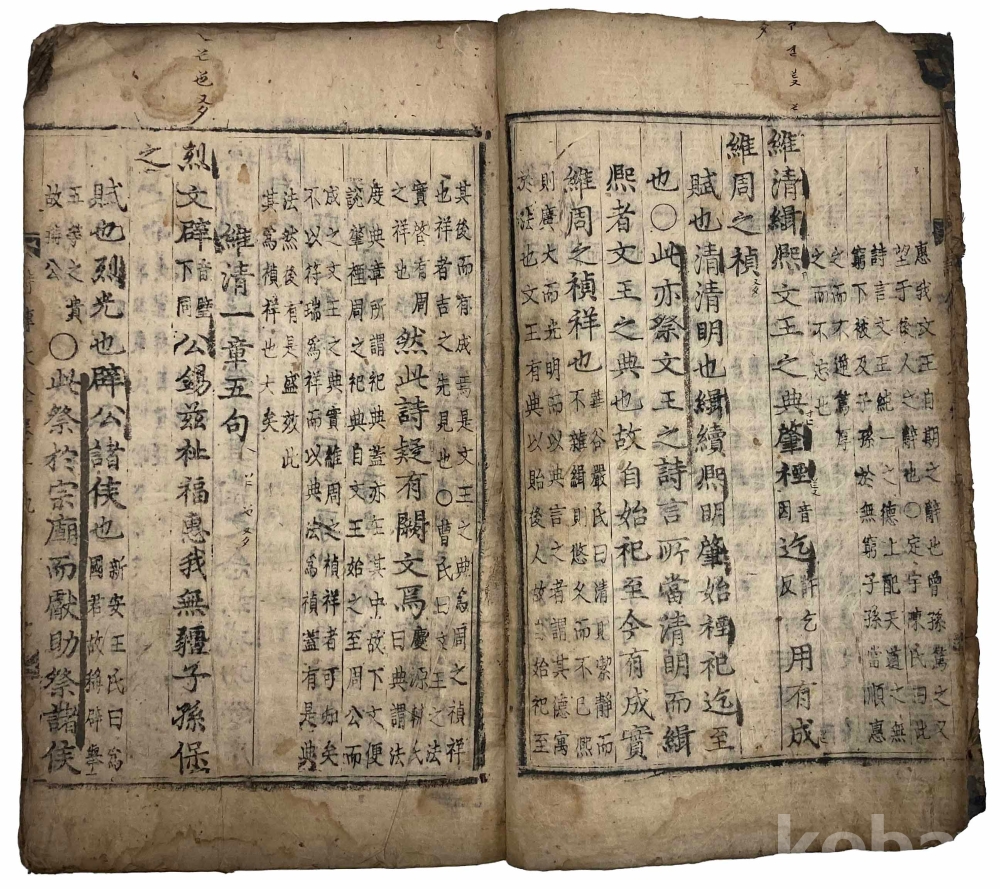 惠我文王自期之辭也曾孫篤之又
望于後人之辭也○定宇陳民曰此
詩言文王純一之德上配天道之無
窮下被及子孫於無窮子孫當順惠
之而不逆篤厚
之而不忘也
維清緝熙文王之典肇禋音因迄許乞反用有成
維周之禎
賦也清清明也緝續熙明肇始禋祀迄至
也○此亦祭文王之詩言所當清明而緝
熙者文王之典也故自始祀至今有成實
維周之禎祥也華谷嚴民曰清則潔靜而
不雜緝則悠久而不已熙
則廣大而光明而以典言之者謂其德寓
於法也文王有典以貽後人故當始祀至
其後而有成焉是文王之典為周之禎祥
也祥者吉之先見也○曹民曰文王之法
實啓有周
之祥也然此詩疑有闕文焉慶源輔氏
曰典謂法
度典章所謂祀典蓋亦在其中故下文便
說肇禋周之祀典自文王始之至周公而
成之文王之典實維周之禎祥者可知矣
不以符瑞為祥而以典法為禎蓋有是典
法然後有是盛效此
其為禎祥也大矣
維清一章五句
烈文辟音璧下同公錫茲祉福惠我無疆子孫保
之
賦也烈光也辟公諸侯也新安王民曰為
國君故稱辟無
五等之貴
故稱公○此祭於宗廟而獻助祭諸侯
koba